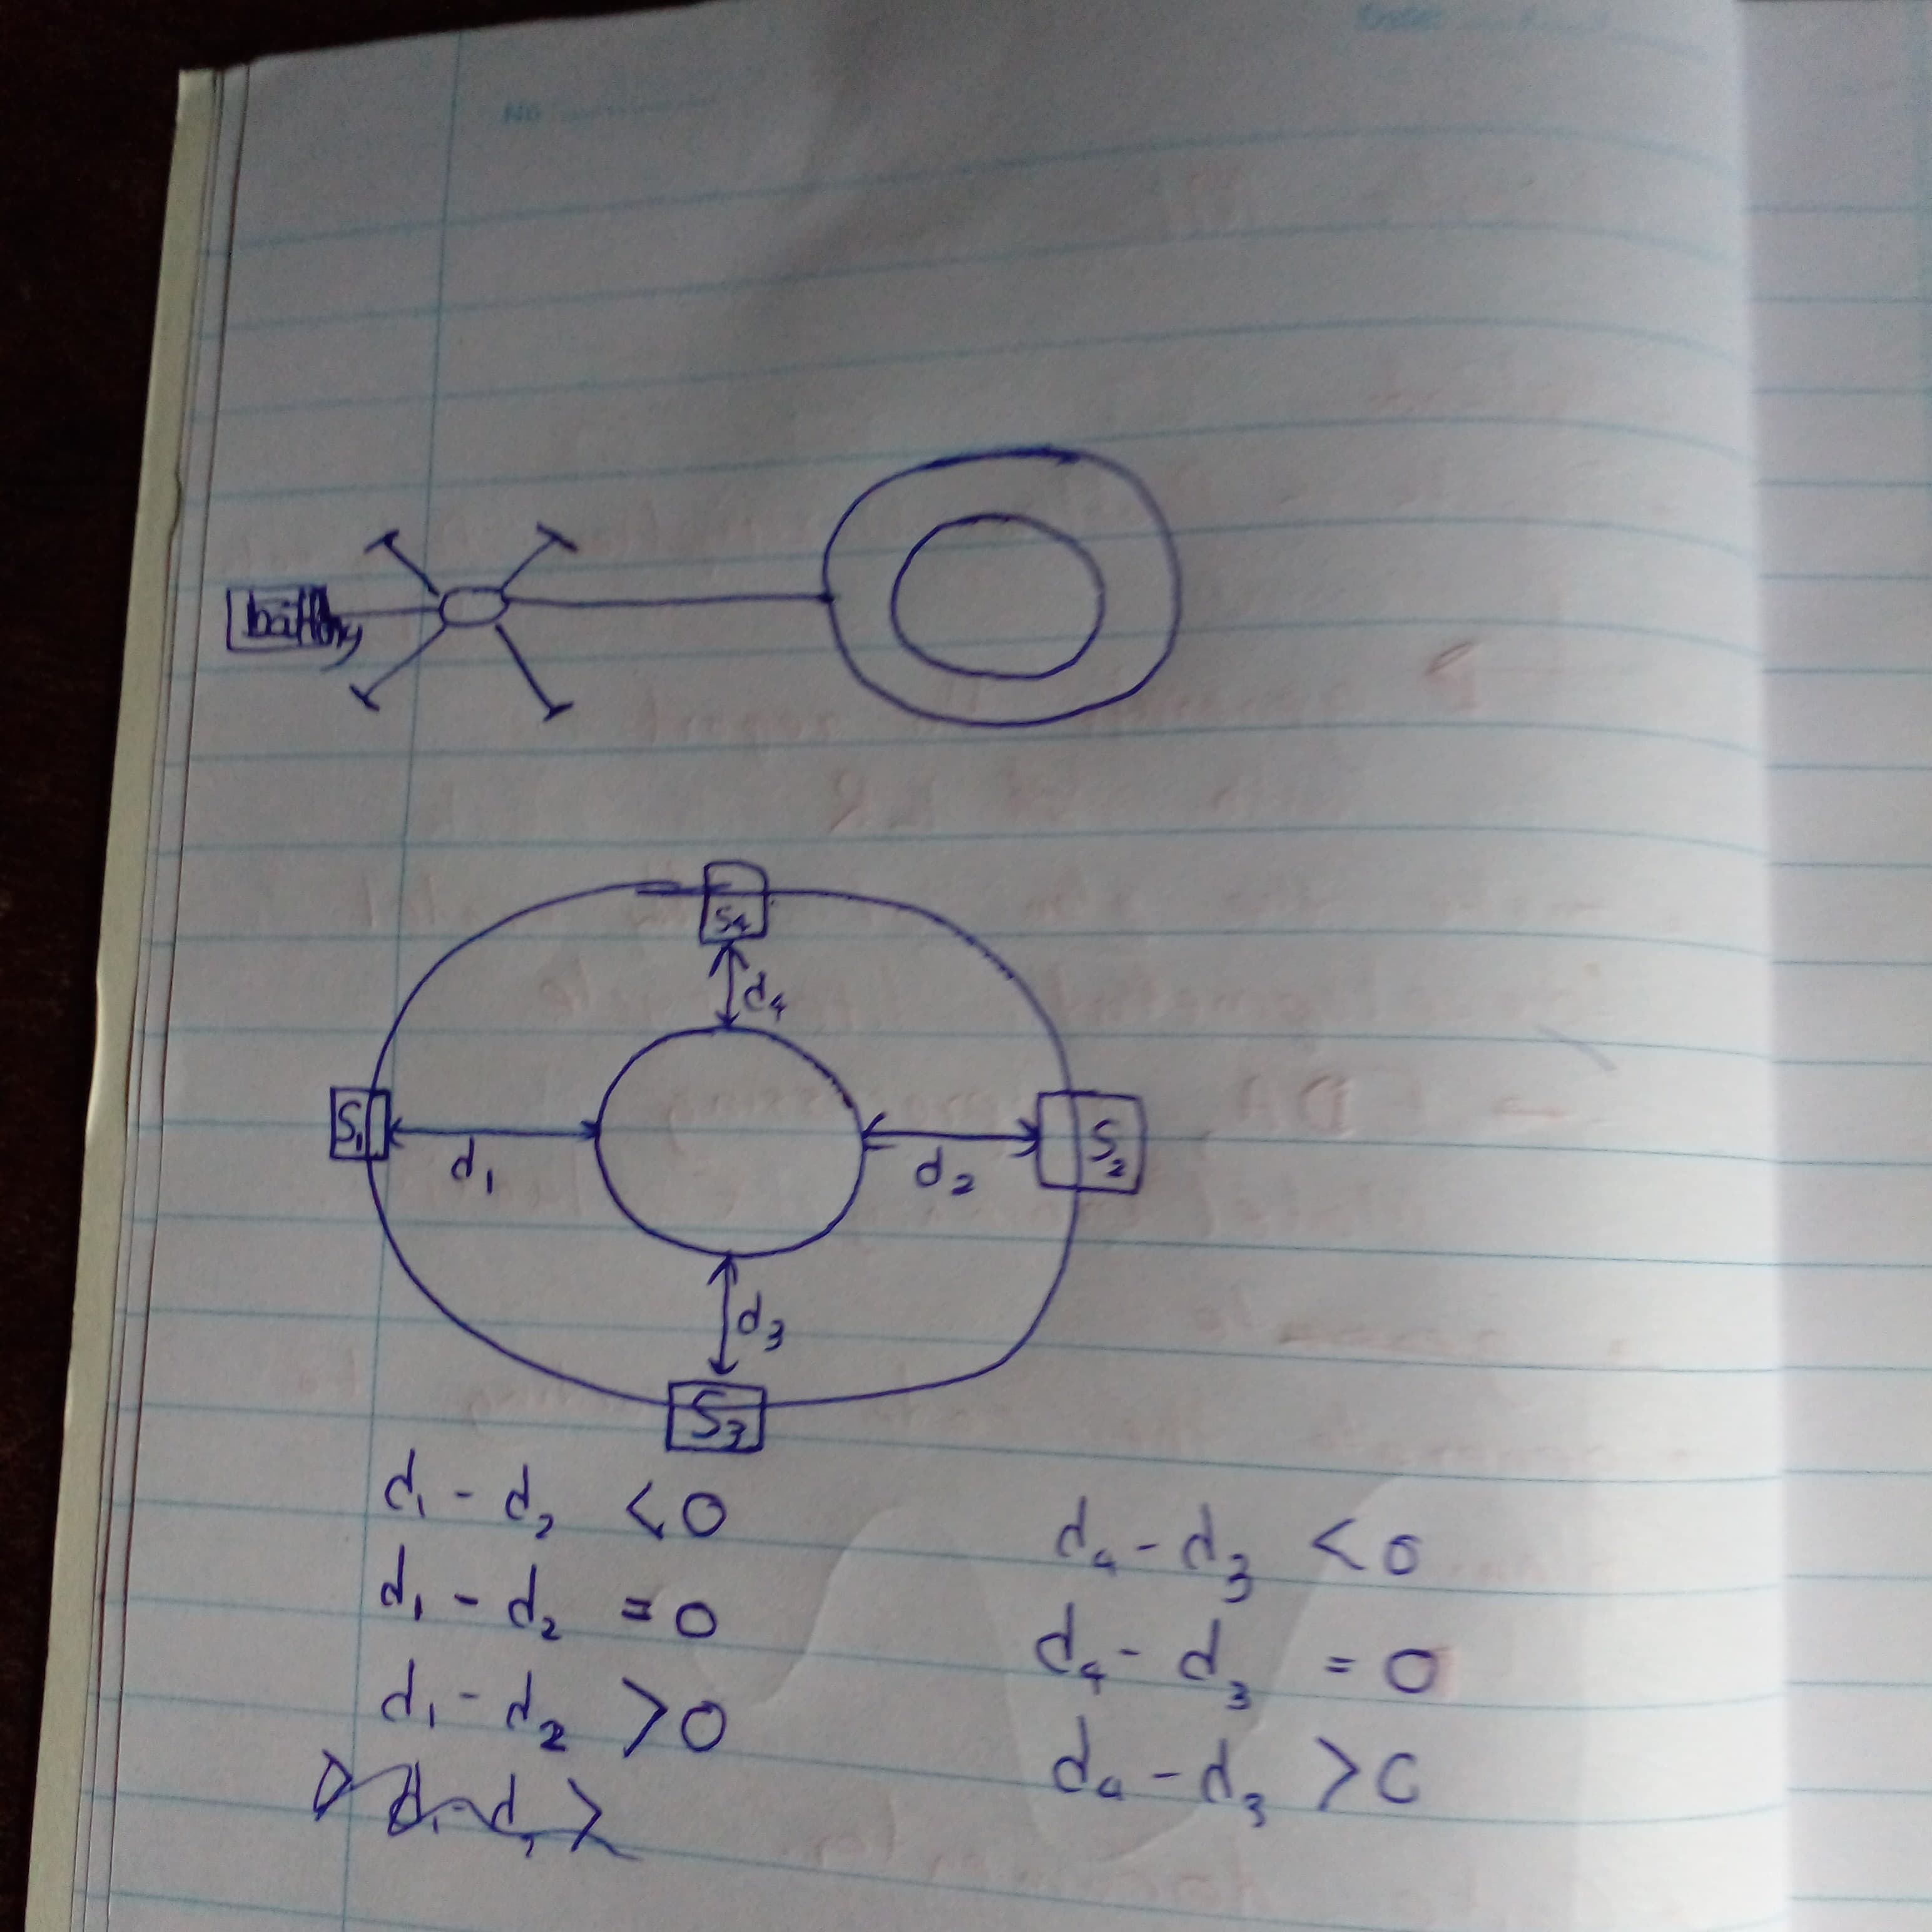 No
battery
S4
d4
S1
d1
d2
S2
d3
S3
d1 - d2 < 0
d1 - d2 = 0
d1 - d2 > 0
d4 - d3 < 0
d4 - d3 = 0
d4 - d3 > 0